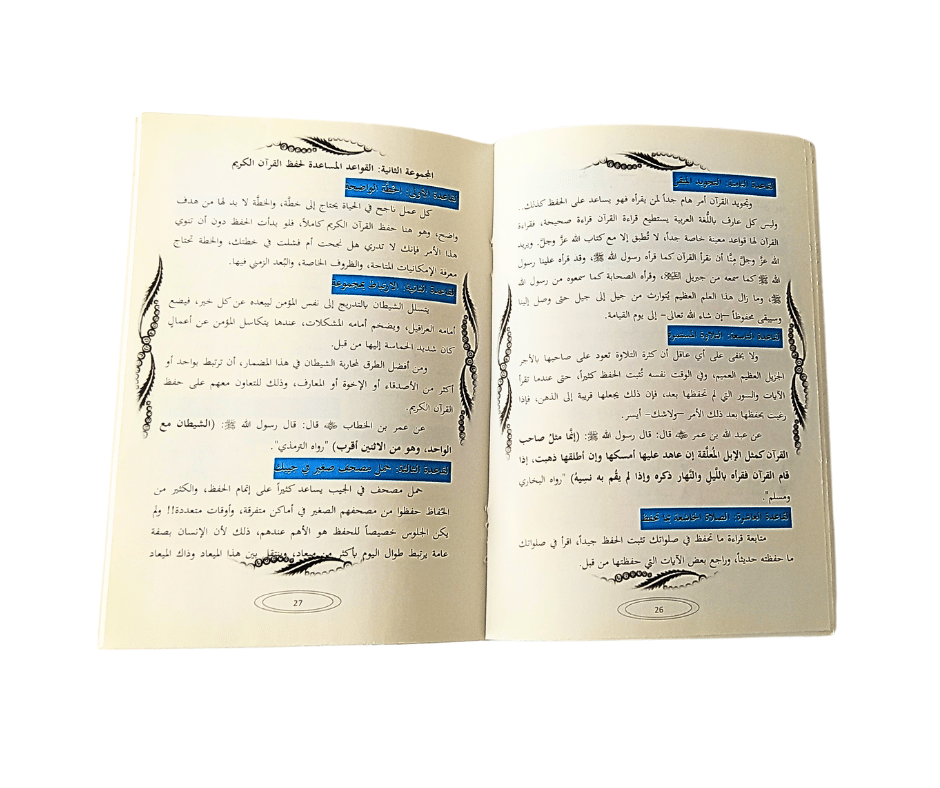 القاعدة الثامنة: التجويد المتقن
وتجويد القرآن أمر هام جداً لمن يقرأه فهو يساعد على الحفظ كذلك..
وليس كل عارف باللُّغة العربية يستطيع قراءة القرآن قراءة صحيحة، فقراءة
القرآن لها قواعد معينة خاصة جداً، لا تُطبق إلا مع كتاب الله عزَّ وجلَّ. ويريد
الله عزَّ وجلَّ منَّا أن نقرأ القرآن كما قرأه رسول الله ﷺ، وقد قرأه علينا رسول
الله ﷺ كما سمعه من جبريل، وقرأه الصحابة كما سمعوه من رسول الله
ﷺ، وما زال هذا العلم العظيم يُتوارث من جيل إلى جيل حتى وصل إلينا
وسيبقى محفوظاً –إن شاء الله تعالى– إلى يوم القيامة.
القاعدة التاسعة: التلاوة المستمرة
ولا يخفى على أي عاقل أن كثرة التلاوة تعود على صاحبها بالأجر
الجزيل العظيم العميم، وفي الوقت نفسه تُثبت الحفظ كثيراً، حتى عندما تقرأ
الآيات والسور التي لم تحفظها بعد، فإن ذلك يجعلها قريبة إلى الذهن، فإذا
رغبت بحفظها بعد ذلك الأمر –ولاشك– أيسر.
عن عبد الله بن عمر قال: قال رسول الله ﷺ: (إنَّما مثلُ صاحب
القرآن كمثل الإبل المُعلَّقة إن عاهد عليها أمسكها وإن أطلقها ذهبت، إذا
قام القرآن فقرأه باللَّيل والنَّهار ذكره وإذا لم يقُم به نسيهُ) "رواه البخاري
ومسلم".
القاعدة العاشرة: الصلاة الخاشعة بما تحفظ
متابعة قراءة ما تحفظ في صلواتك تثبت الحفظ جيداً، اقرأ في صلواتك
ما حفظته حديثاً، وراجع بعض الآيات التي حفظتها من قبل.
26
المجموعة الثانية: القواعد المساعدة لحفظ القرآن الكريم
القاعدة الأولى: الخطَّة الواضحة
كل عمل ناجح في الحياة يحتاج إلى خطَّة، والخطَّة لا بد لها من هدف
واضح، وهو هنا حفظ القرآن الكريم كاملاً، فلو بدأت الحفظ دون أن تنوي
هذا الأمر فإنك لا تدري هل نجحت أم فشلت في خطتك، والخطة تحتاج
معرفة الإمكانيات المتاحة، والظروف الخاصة، والبُعد الزمني فيها.
القاعدة الثانية: الارتباط بمجموعة
يتسلل الشيطان بالتدريج إلى نفس المؤمن ليبعده عن كل خير، فيضع
أمامه العراقيل، ويضخم أمامه المشكلات، عندها يتكاسل المؤمن عن أعمالٍ
كان شديد الحماسة إليها من قبل.
ومن أفضل الطرق لمحاربة الشيطان في هذا المضمار، أن ترتبط بواحد أو
أكثر من الأصدقاء أو الإخوة أو المعارف، وذلك للتعاون معهم على حفظ
القرآن الكريم.
عن عمر بن الخطاب قال: قال رسول الله ﷺ: (الشيطان مع
الواحد، وهو من الاثنين أقرب) "رواه الترمذي".
القاعدة الثالثة: حمل مصحف صغير في جيبك
حمل مصحف في الجيب يساعد كثيراً على إتمام الحفظ، والكثير من
الحُفاظ حفظوا من مصحفهم الصغير في أماكن متفرقة، وأوقات متعددة!! ولم
يكن الجلوس خصيصاً للحفظ هو الأهم عندهم، ذلك لأن الإنسان بصفة
عامة يرتبط طوال اليوم بأكثر من ميعاد، وينتقل بين هذا الميعاد وذاك الميعاد
27